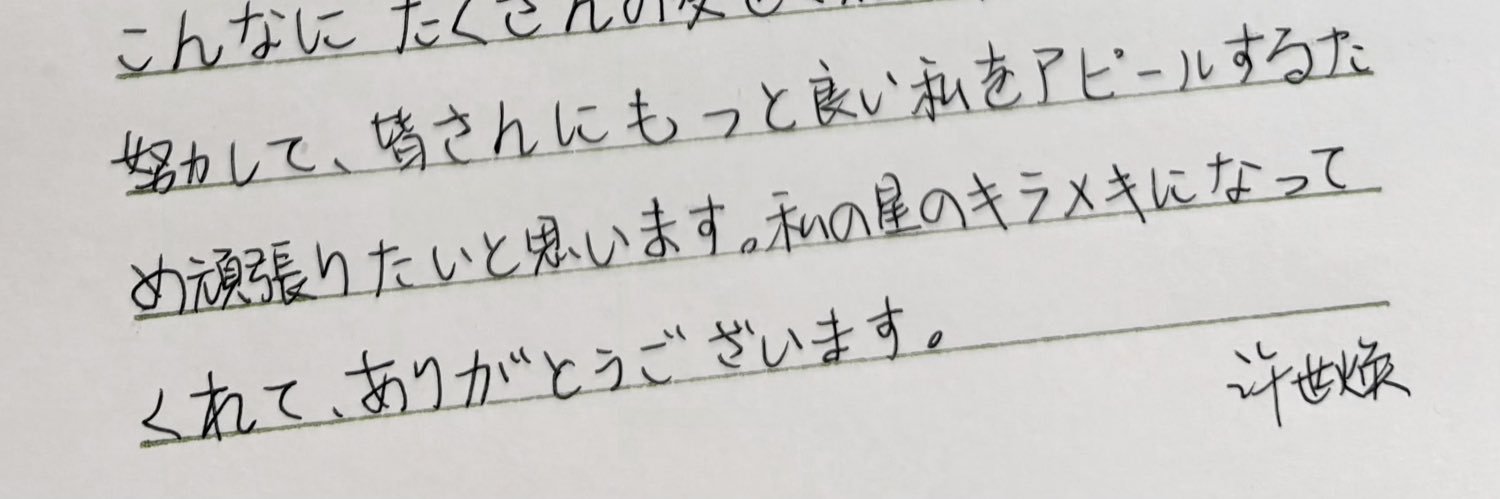 こんなに たくさんの
努力して、皆さんにもっと良い私をアピールするた
め頑張りたいと思います。私の星のキラメキになって
くれて、ありがとうございます。
许世焕